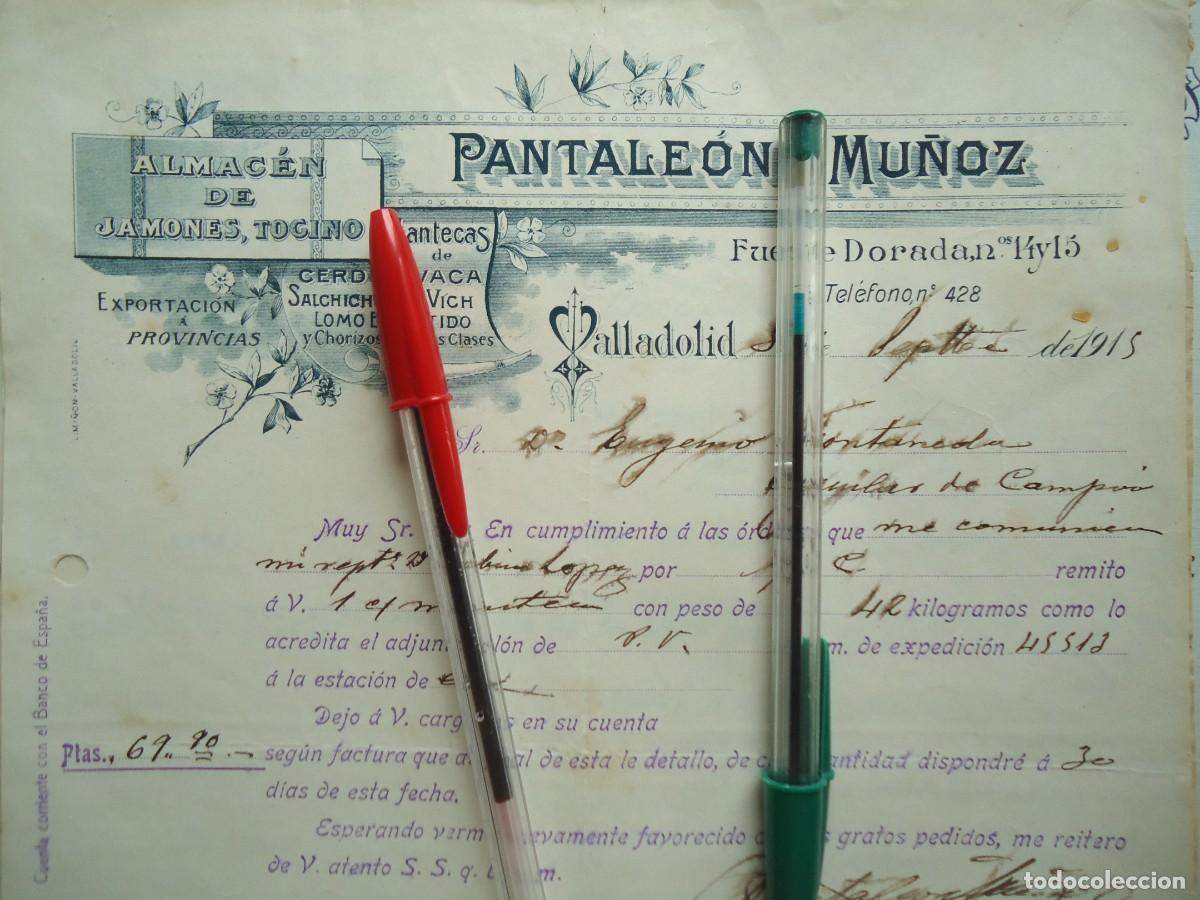 PANTALEÓN MUÑOZ
ALMACÉN
DE
JAMONES, TOCINO
antecas
de
CERD VACA
SALCHICH VICH
LOMO E TIDO
y Chorizos s Clases
EXPORTACIÓN
Á
PROVINCIAS
Fue e Dorada, nos 14 y 15
Teléfono, nº 428
Valladolid de 1915
L. MIÑON-VALLADOLID
Sr. Dn Eugenio Fontaneda
de Campóo
Muy Sr. En cumplimiento á las órd que me comunica
mi reptº Lopez por C. remito
á V. 1 con peso de 42 kilogramos como lo
acredita el adjun lón de P. V. m. de expedición 45513
á la estación de
Dejo á V. carg s en su cuenta
Ptas., 69,, 90 .- según factura que a nal de esta le detallo, de c antidad dispondré á 30
días de esta fecha.
Esperando verm evamente favorecido s gratos pedidos, me reitero
de V. atento S. S. q. m.
Cuenta corriente con el Banco de España.
todocoleccion